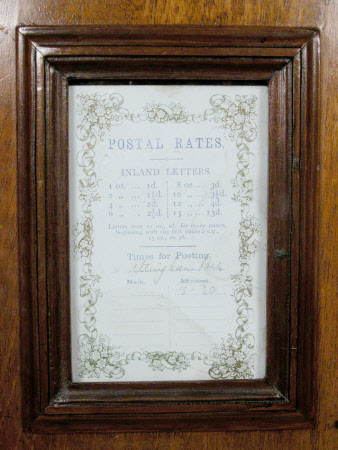 POSTAL RATES.
INLAND LETTERS.
1 oz. ... 1d. 8 oz. ... 3d.
2 „ ... 1½d. 10 „ ... 3½d.
4 „ ... 2d. 12 „ ... 4d.
6 „ ... 2½d. 13 „ ... 13d.
Letters over 12 oz., 1d. for every ounce,
beginning with the first ounce—e.g.,
13 oz., 1s. 1d.
Times for Posting.
Morn. Afternoon.
5.20